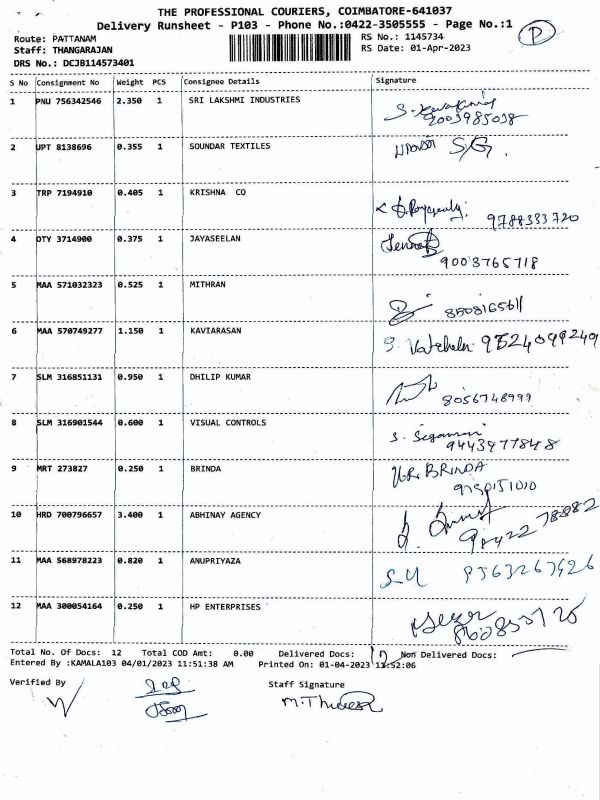 THE PROFESSIONAL COURIERS, COIMBATORE-641037
Delivery Runsheet - P103 - Phone No.:0422-3505555 - Page No.:1
P
Route: PATTANAM
RS No.: 1145734
Staff: THANGARAJAN
RS Date: 01-Apr-2023
DRS No.: DCJB114573401
S No Consignment No Weight PCS Consignee Details Signature
1 PNU 756342546 2.350 1 SRI LAKSHMI INDUSTRIES
9003985038
2 UPT 8138696 0.355 1 SOUNDAR TEXTILES
3 TRP 7194910 0.405 1 KRISHNA CO
9788333720
4 OTY 3714900 0.375 1 JAYASEELAN
9003765718
5 MAA 571032323 0.525 1 MITHRAN
6 MAA 570749277 1.150 1 KAVIARASAN
7 SLM 316851131 0.950 1 DHILIP KUMAR
8056748999
8 SLM 316901544 0.600 1 VISUAL CONTROLS
9443977848
9 MRT 273827 0.250 1 BRINDA BRINDA
10 HRD 700796657 3.400 1 ABHINAY AGENCY
11 MAA 568978223 0.820 1 ANUPRIYAZA
12 MAA 300054164 0.250 1 HP ENTERPRISES
Total No. Of Docs: 12 Total COD Amt: 0.00 Delivered Docs: Non Delivered Docs:
Entered By :KAMALA103 04/01/2023 11:51:38 AM Printed On: 01-04-2023 11:52:06
Verified By Staff Signature